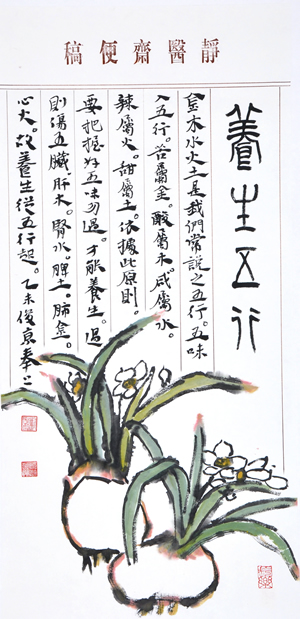 靜醫齋便稿
養生五行
金木水火土是我們常說之五行。五味
入五行。苦屬金。酸屬木。咸屬水。
辣屬火。甜屬土。依據此原則。
要把握好五味勿過。才能養生。過
則傷五臟。肝木。腎水。脾土。肺金。
心火。故養生從五行起。乙未俊奉上